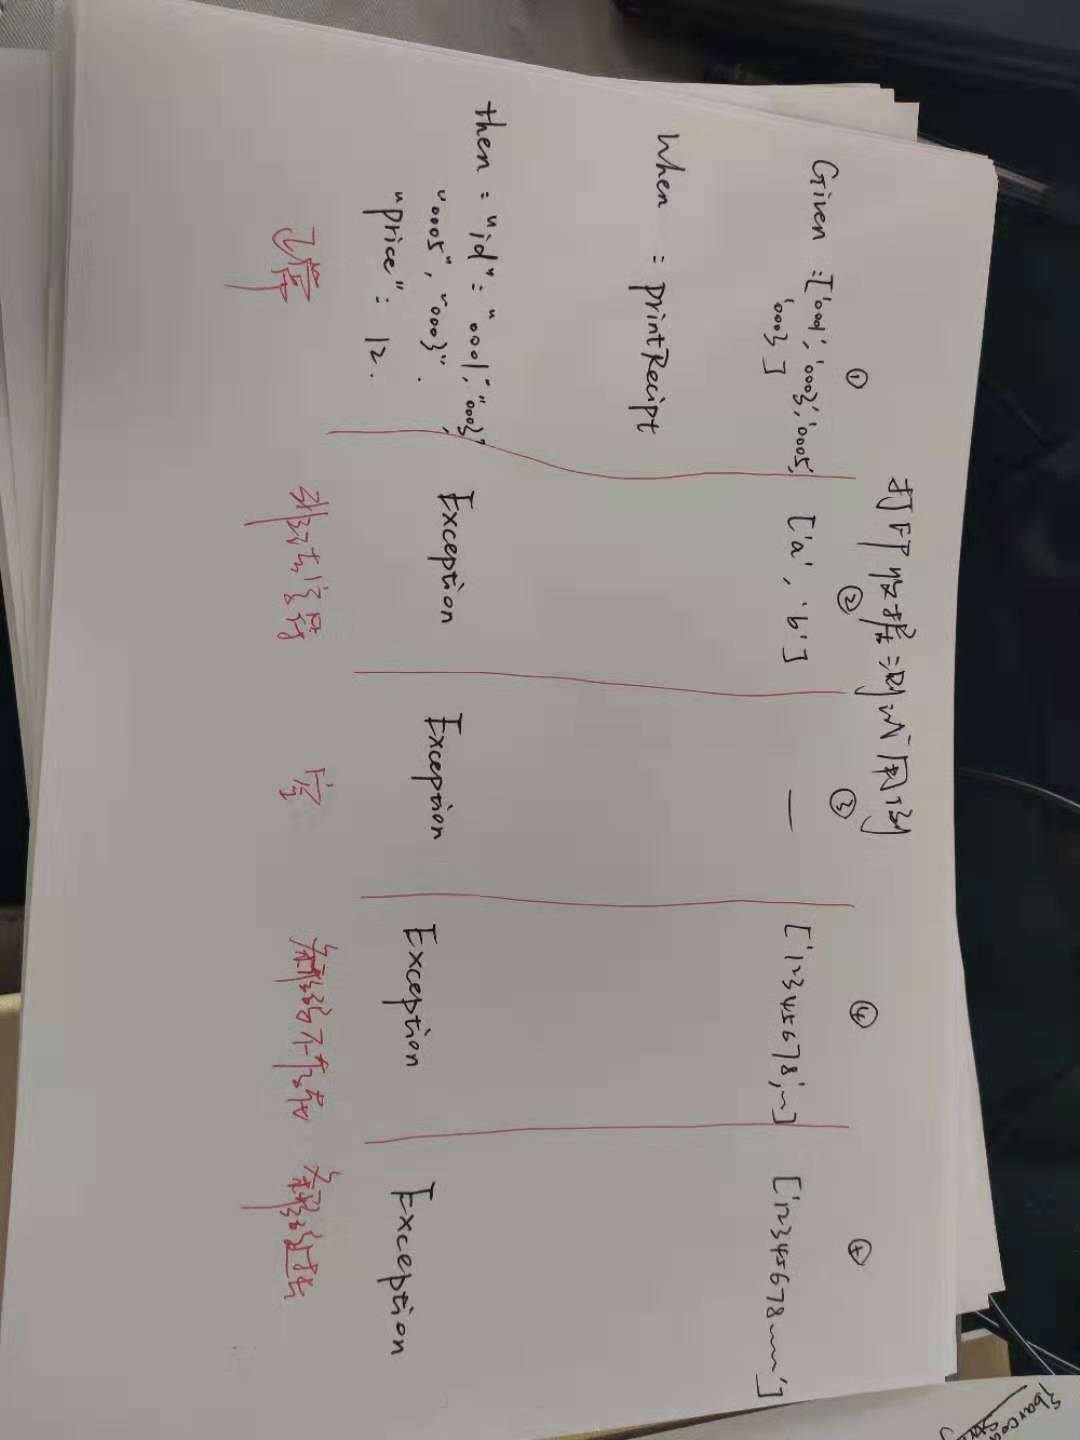 打印收据=测试用例
① ② ③ ④ ⑤
Given =['0001','0003','0005',
'0003']
['a', 'b']
—
['12345678',~]
['12345678~~~']
When = printRecipt
then = "id": "0001","0003",
"0005", "0003".
"price": 12.
Exception
Exception
Exception
Exception
正常
空
条形码不存在
条形码过长